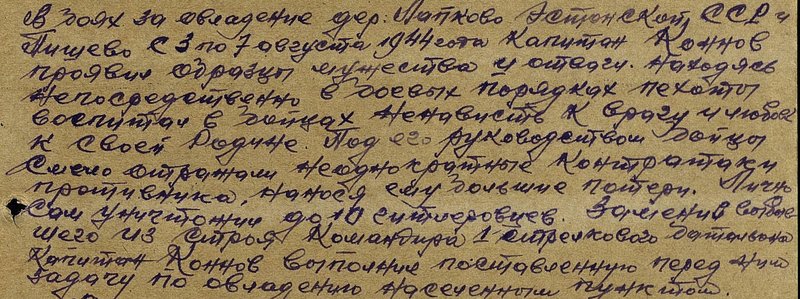 В боях за овладение дер. Лапково Эстонской ССР и
Пишево с 3 по 7 августа 1944 года Капитан Коннов
проявил образцы мужества и отваги. Находясь
непосредственно в боевых порядках пехоты
воспитал в бойцах ненависть к врагу и любовь
к своей Родине. Под его руководством бойцы
смело отражали неоднократные контратаки
противника, нанося ему большие потери. Лично
сам уничтожил до 10 гитлеровцев. Заменив выбыв
шего из строя Командира 1 стрелкового батальона
Капитан Коннов выполнил поставленную перед ним
задачу по овладению населенным пунктом.